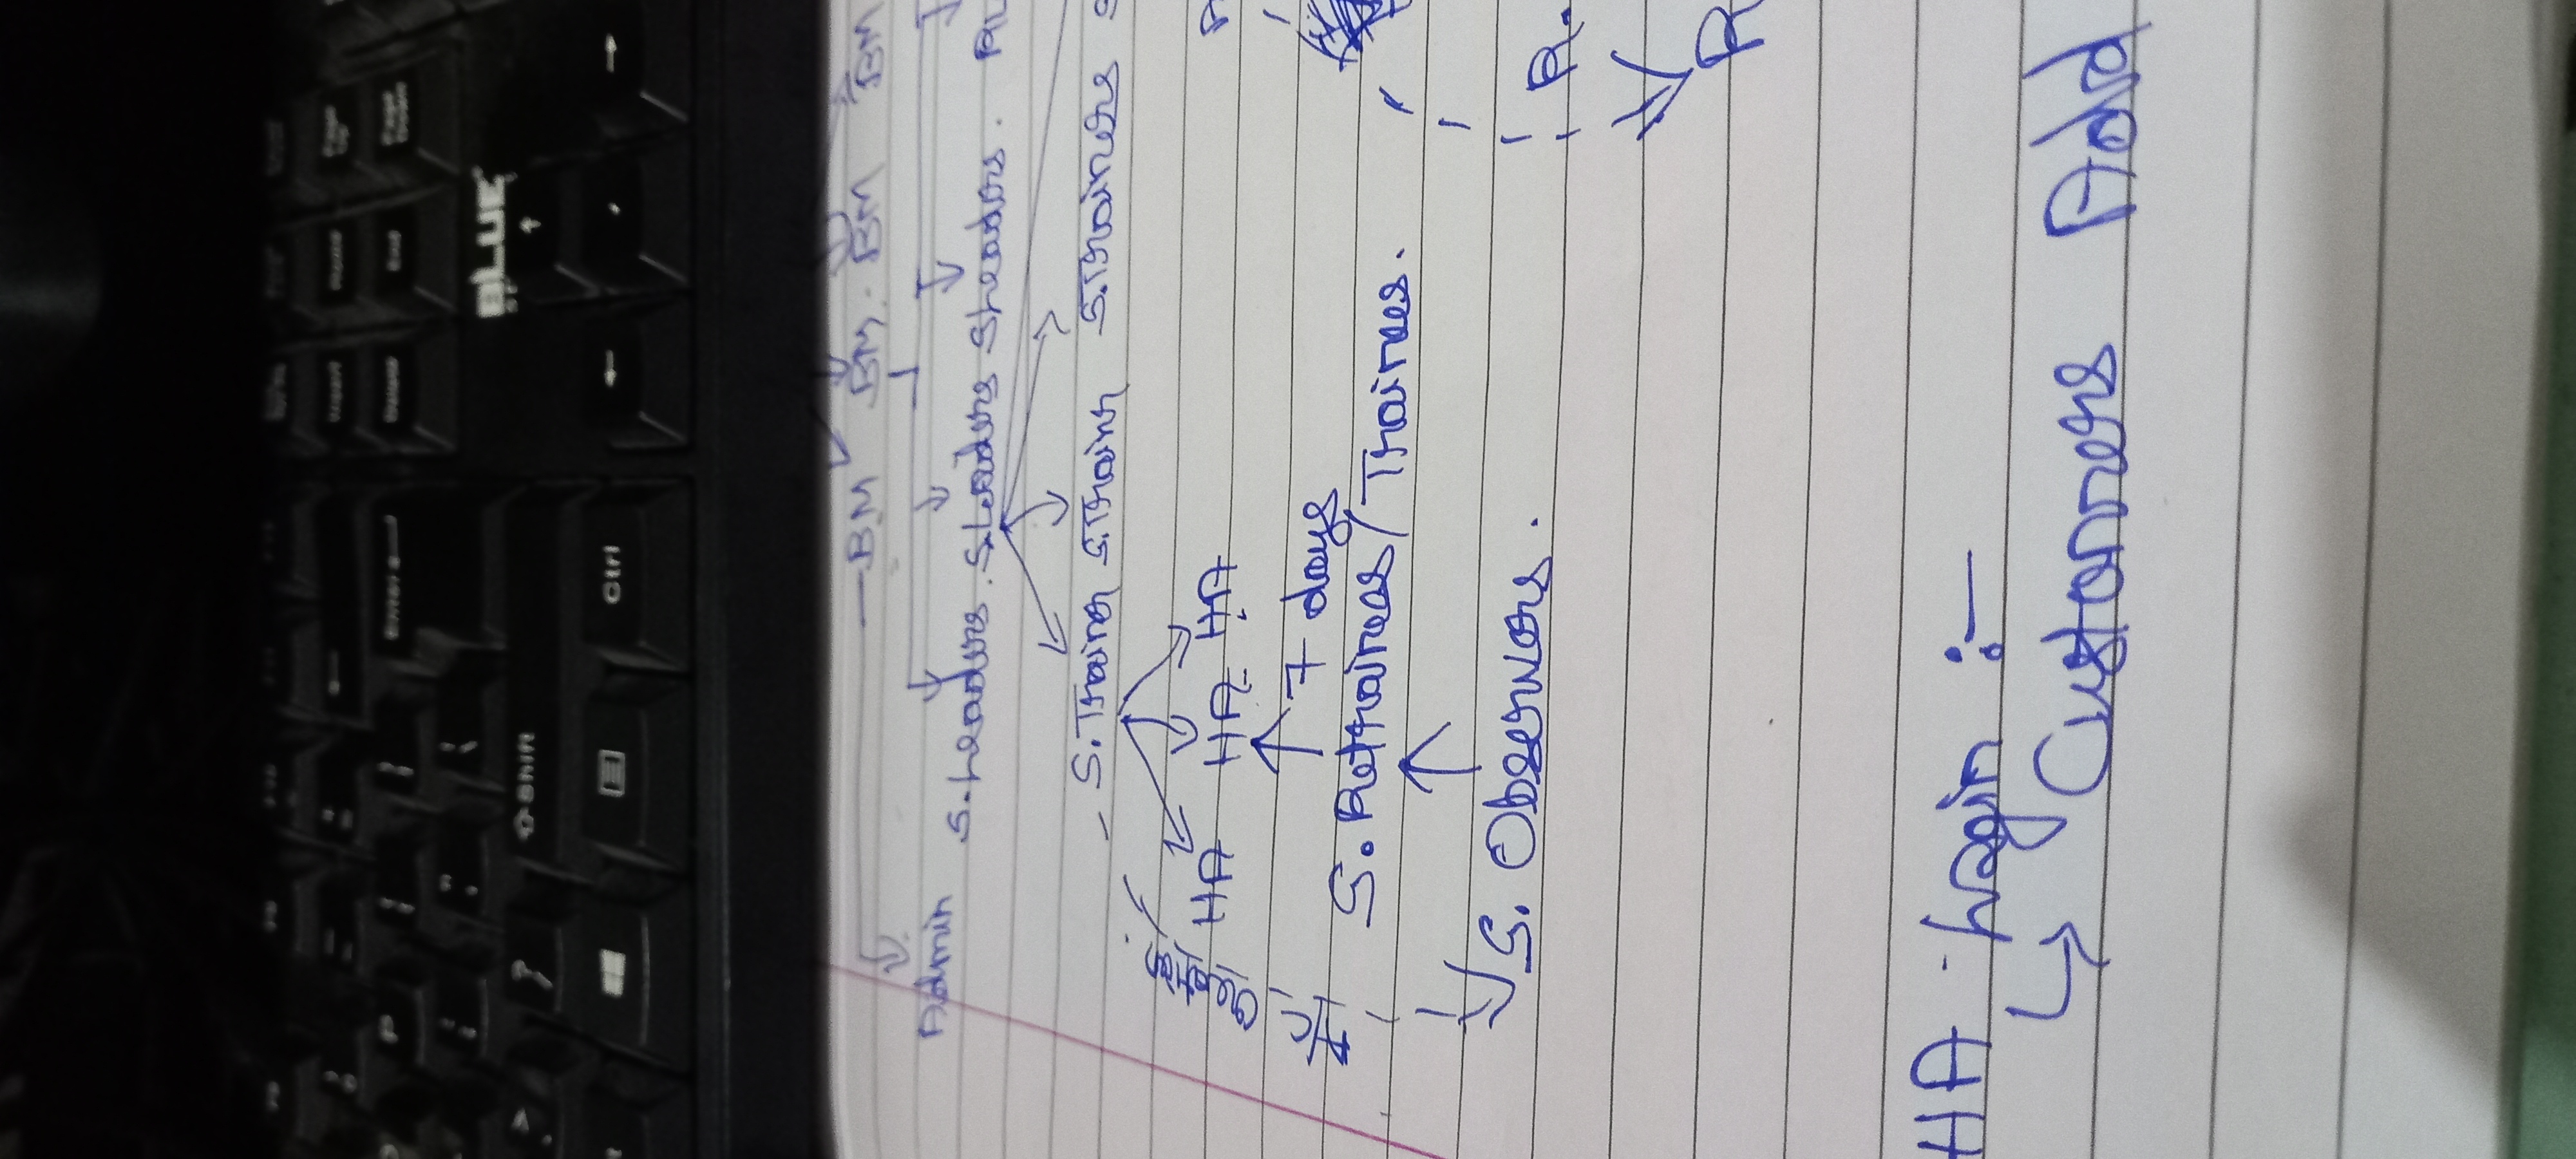 P
Enter
Insert Home Page Up
Delete End Page Down
BLUE
Shift
Ctrl
BM BM. BM BM
Admin
S.Leaders. S.Leaders S.Leaders. RL
S.Trainer S.Trainr S.Trainers S
A/C Creation
HA HA HA
7 days
S. Retrainees/Trainees.
S. Observors.
R.
R
HA Login :-
Customers Add